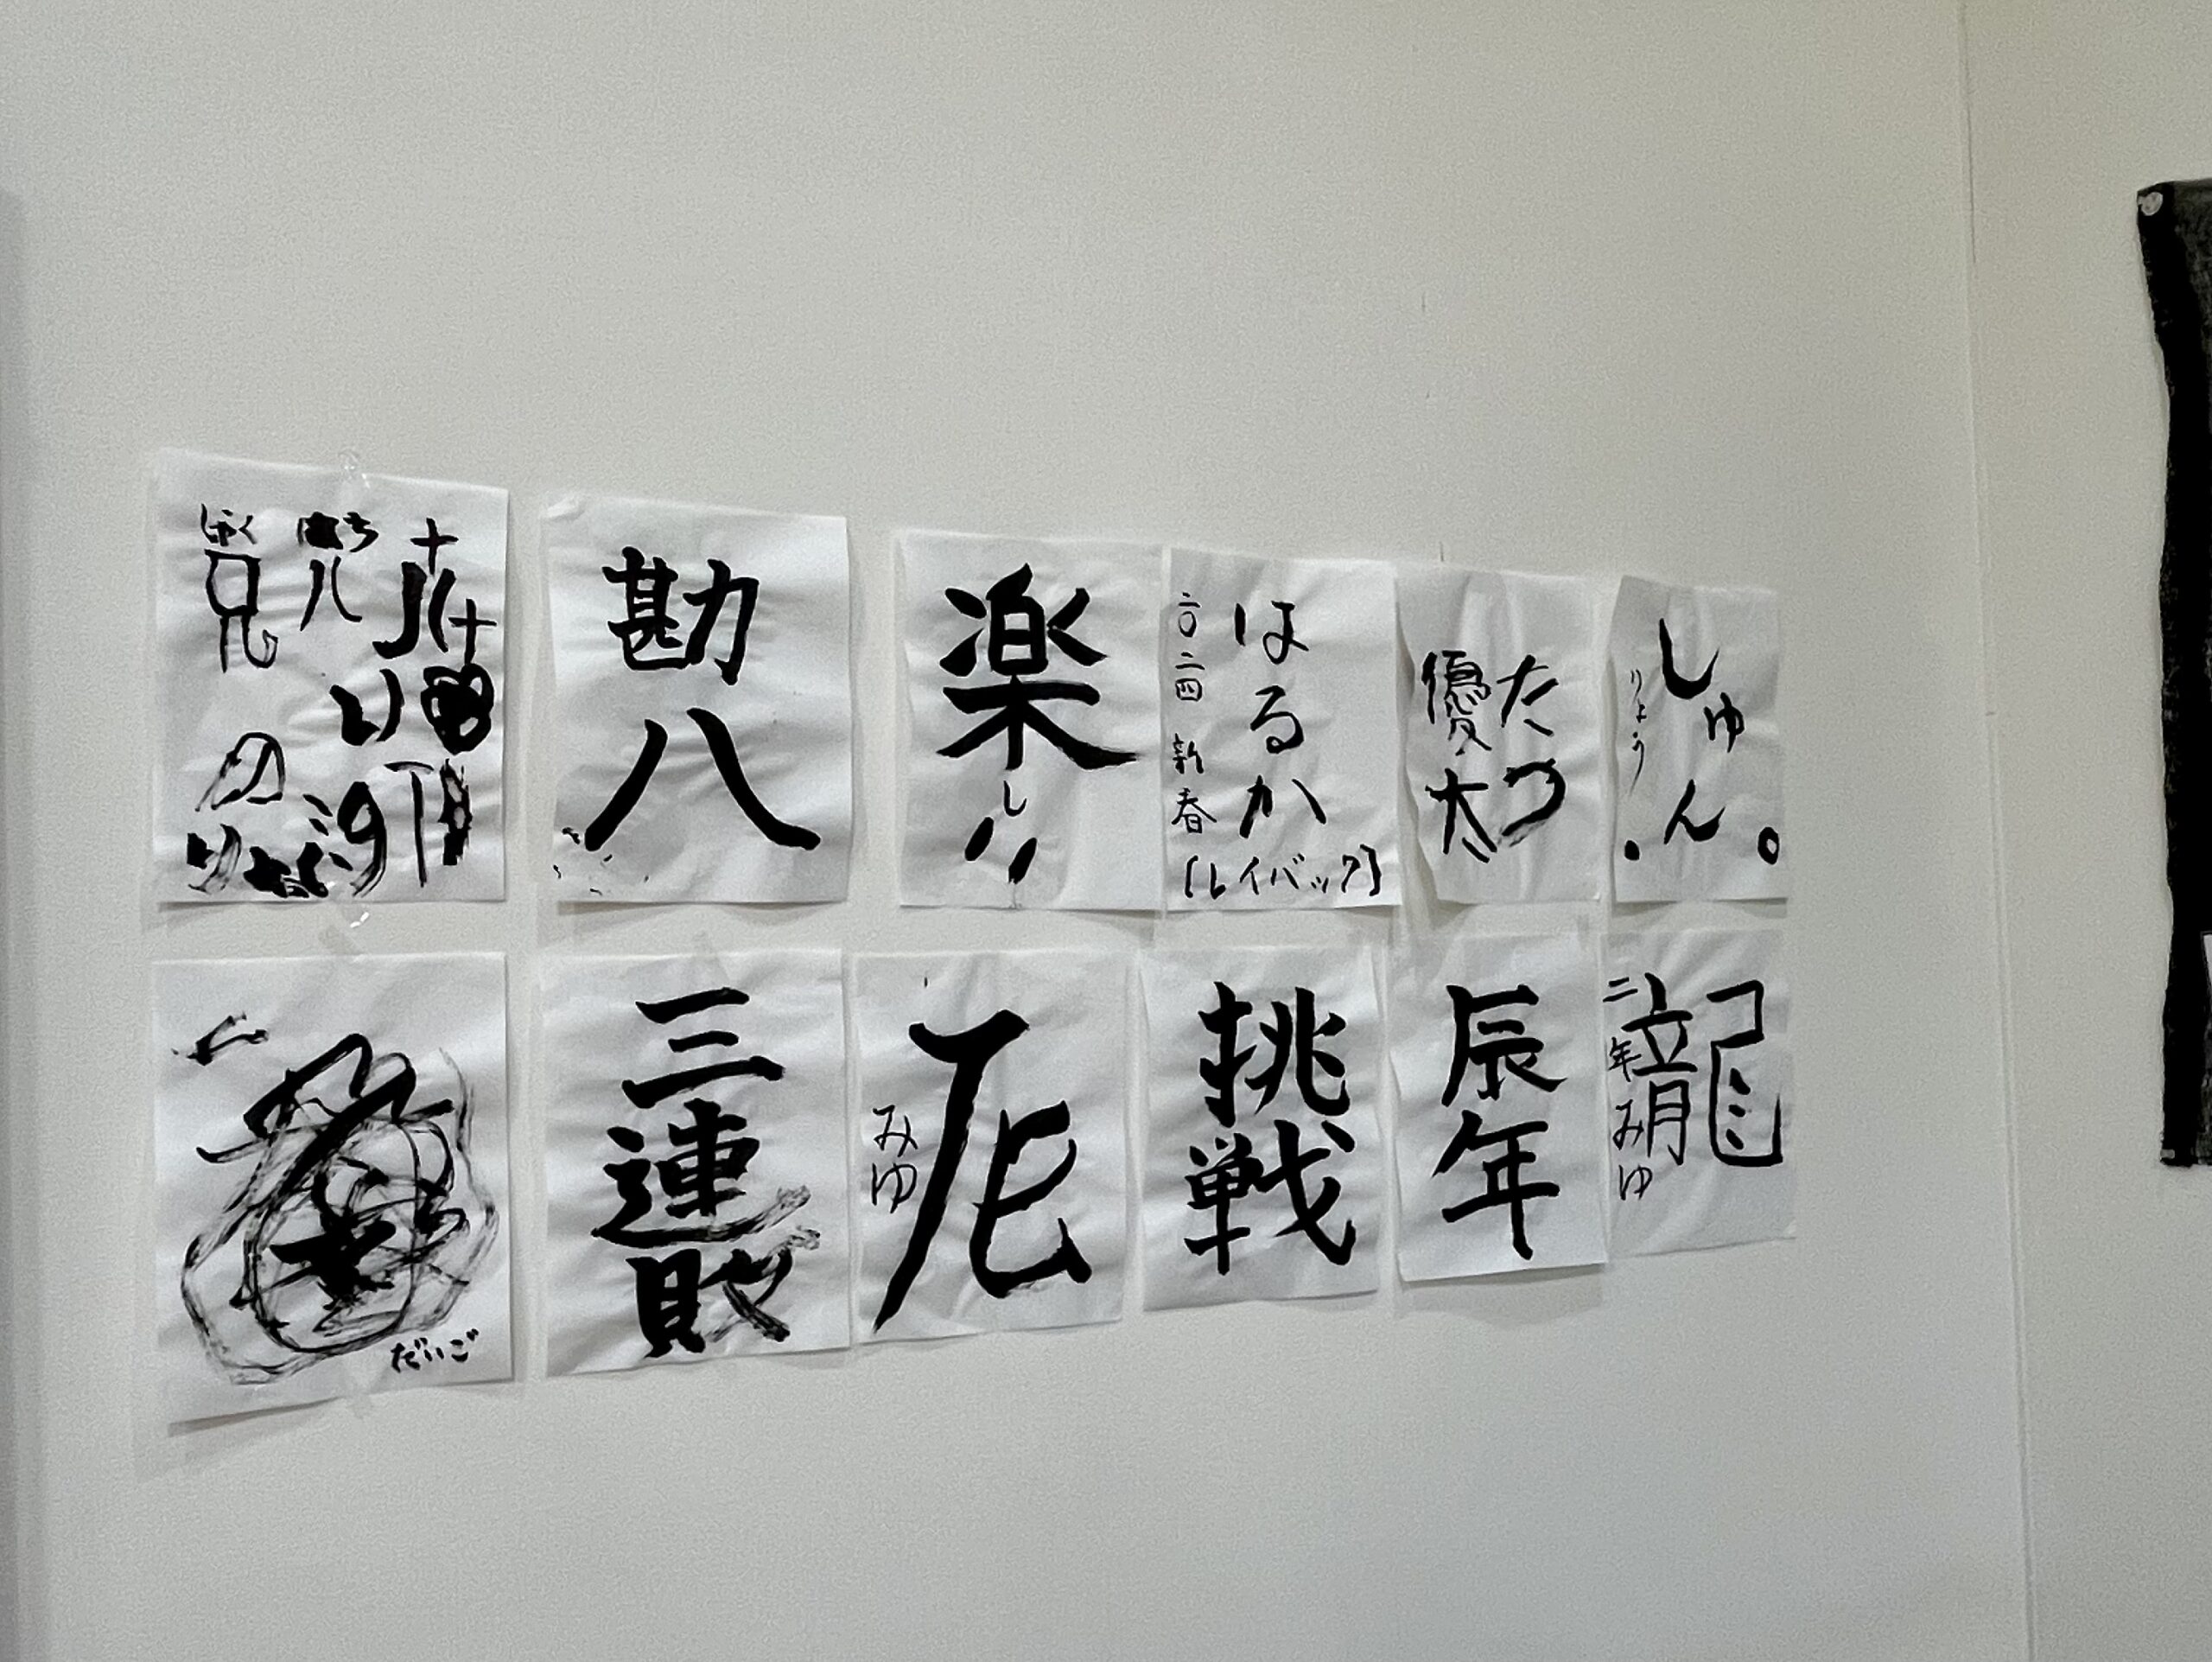 しゅん。
りょう
たつ
優太
はるか
二〇二四 新春
[レイバック]
楽しい
勘八
はち
八
ぼく
兄
の
龍
二年みゆ
辰年
挑戦
厄
みゆ
三連敗
だいご